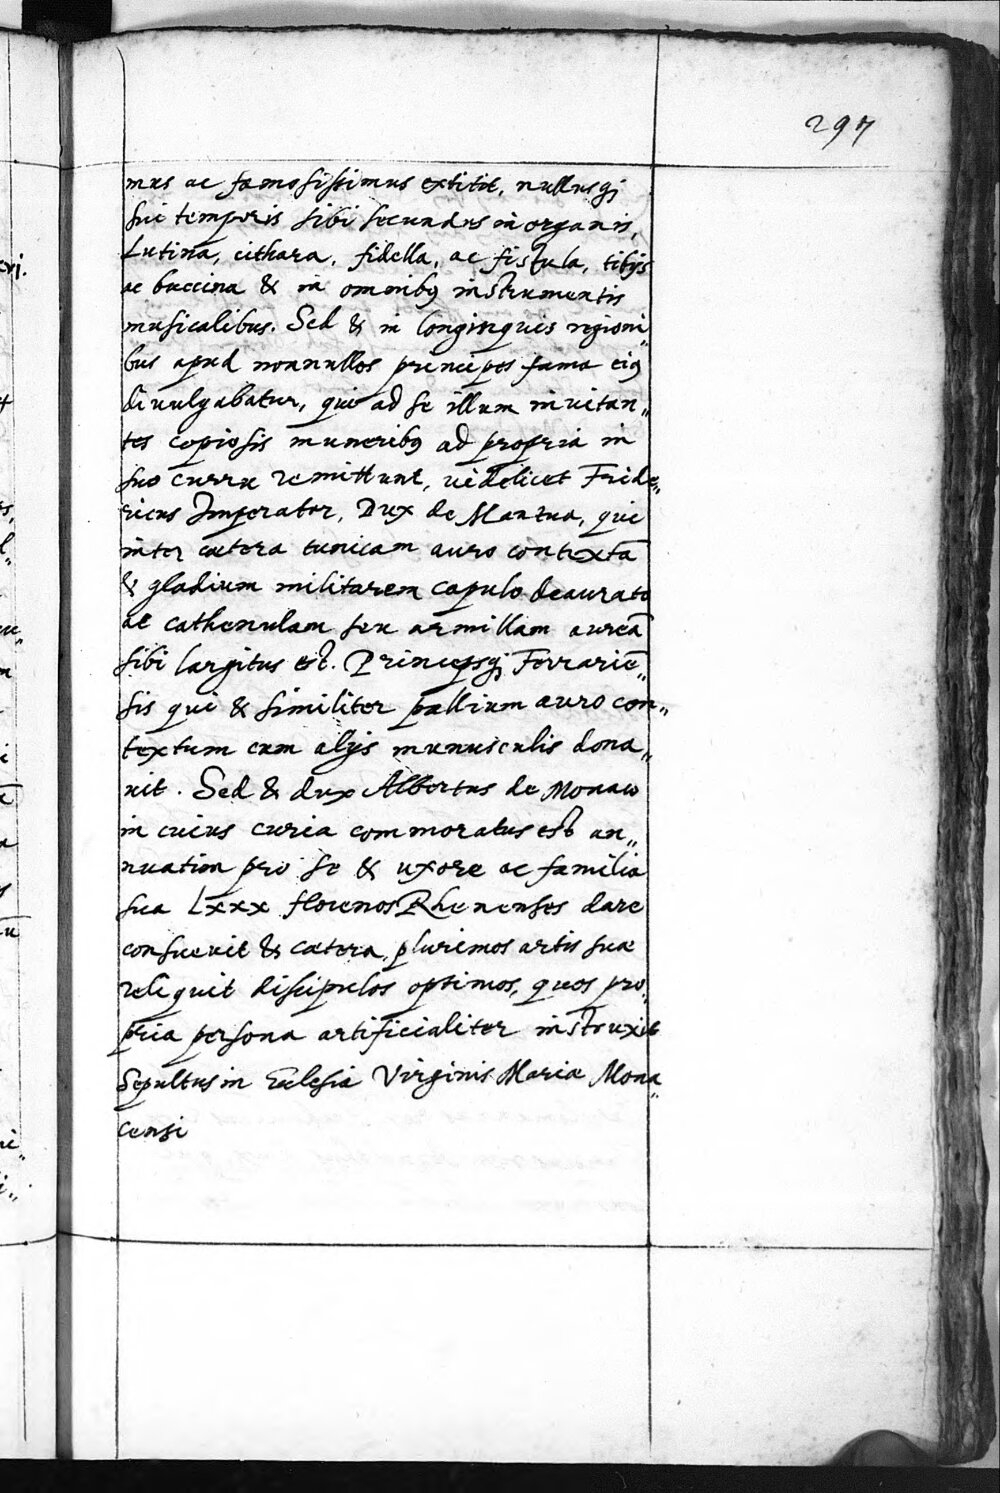 297
mus ac famosissimus extitit, nullusqȝ
sui temporis sibi secundus in organis,
Lutina, cithara, fidella, ac fistula, tibijs
ac buccina & in omnibꝰ instrumentis
musicalibus. Sed & in longinquis regioni„
bus apud nonnullos principes fama eiꝰ
diuulgabatur, qui ad se illum inuitan„
tes copiosis muneribꝰ ad propria in
suo curru remittunt, uidelicet Fride„
ricus Imperator, Dux de Mantua, qui
inter cætera tunicam auro contextā
& gladium militarem capulo deaurato
ac cathenulam seu armillam aureā
sibi largitus est. Princepsqȝ Ferrariē„
sis qui & similiter pallium auro con„
textum cum alijs munusculis dona„
uit. Sed & dux Albertus de Monaco
in cuius curia commoratus est an„
nuatim pro se & uxore ac familia
sua Lxxx florenos Rhenenses dare
consueuit & cætera, plurimos artis suæ
reliquit discipulos optimos, quos pro„
pria persona artificialiter instruxit
Sepultus in Ecclesia Virginis Mariæ Mona„
censi